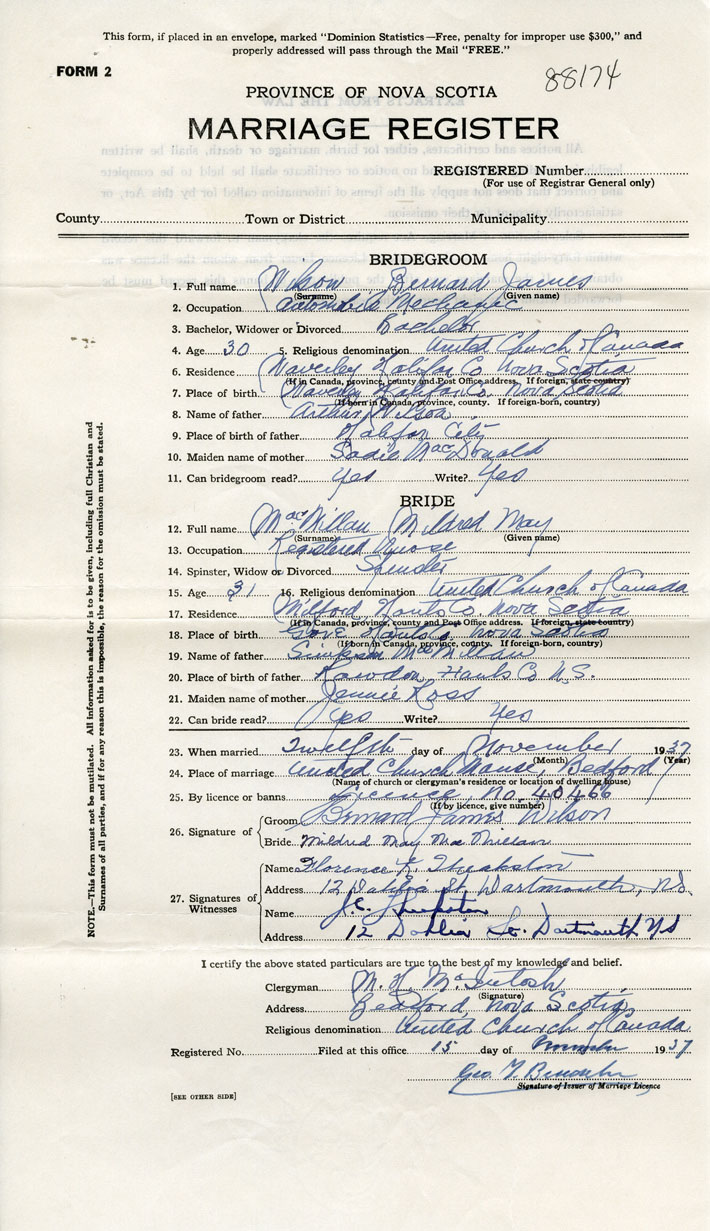 This form, if placed in an envelope, marked "Dominion Statistics—Free, penalty for improper use $300," and
properly addressed will pass through the Mail "FREE."
FORM 2
88174
PROVINCE OF NOVA SCOTIA
MARRIAGE REGISTER
REGISTERED Number
(For use of Registrar General only)
County Town or District Municipality
BRIDEGROOM
1. Full name Wilson Bernard James
(Surname) (Given name)
2. Occupation Automobile Mechanic
3. Bachelor, Widower or Divorced Bachelor
4. Age 30 5. Religious denomination United Church of Canada
6. Residence Waverley Halifax Co Nova Scotia
(If in Canada, province, county and Post Office address. If foreign, state country)
7. Place of birth Waverley Halifax Co Nova Scotia
(If born in Canada, province, county. If foreign-born, country)
8. Name of father Arthur Wilson
9. Place of birth of father Halifax City
10. Maiden name of mother Sadie MacDonald
11. Can bridegroom read? Yes Write? Yes
BRIDE
12. Full name MacMillan Mildred May
(Surname) (Given name)
13. Occupation Registered Nurse
14. Spinster, Widow or Divorced Spinster
15. Age 31 16. Religious denomination United Church of Canada
17. Residence Milford Hants Co. Nova Scotia
(If in Canada, province, county and Post Office address. If foreign, state country)
18. Place of birth Gore Hants Co Nova Scotia
(If born in Canada, province, county. If foreign-born, country)
19. Name of father MacMillan
20. Place of birth of father Rawdon Hants Co N.S.
21. Maiden name of mother Jennie Ross
22. Can bride read? Yes Write? Yes
23. When married Twelfth day of November 1937
(Month) (Year)
24. Place of marriage United Church Manse, Bedford
(Name of church or clergyman's residence or location of dwelling house)
25. By licence or banns Licence, No. 40466
(If by licence, give number)
26. Signature of Groom Bernard James Wilson
Bride Mildred May MacMillan
27. Signatures of Witnesses
Name Florence Theakston
Address 12 Dahlia St. Dartmouth, N.S.
Name
Address 12 Dahlia St. Dartmouth NS
I certify the above stated particulars are true to the best of my knowledge and belief.
Clergyman M. H. McIntosh
(Signature)
Address Bedford, Nova Scotia
Religious denomination United Church of Canada
Registered No. Filed at this office 15 day of November 1937
Geo.
Signature of Issuer of Marriage Licence
[SEE OTHER SIDE]
NOTE.—This form must not be mutilated. All information asked for is to be given, including full Christian and
Surnames of all parties, and if for any reason this is impossible, the reason for the omission must be stated.